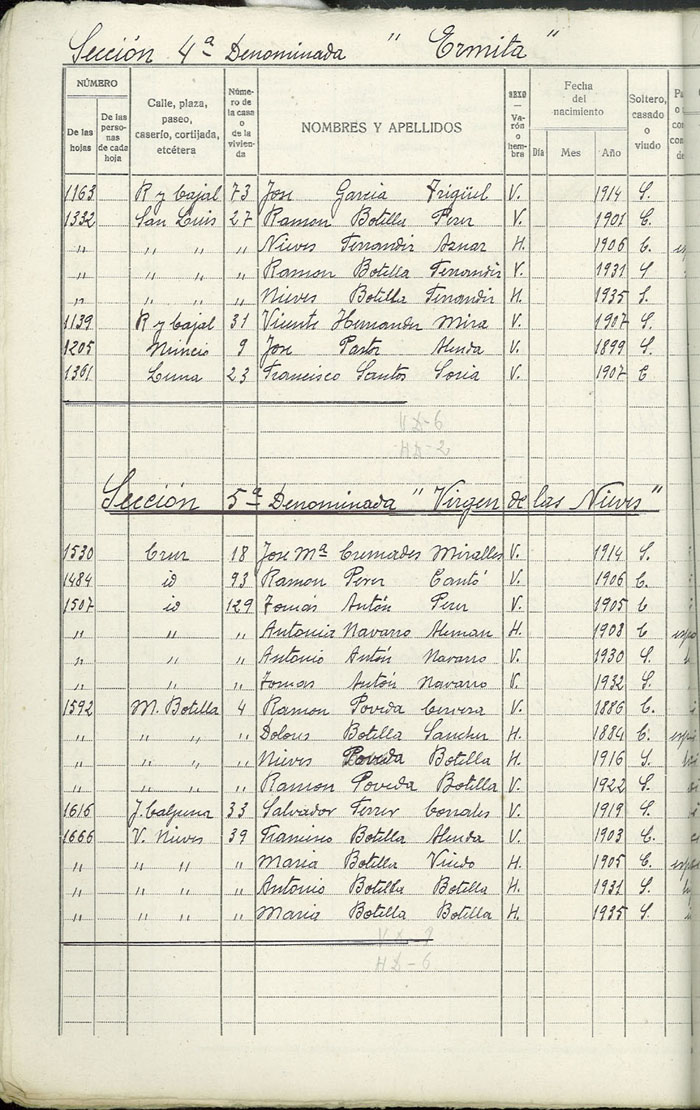 Sección 4ª Denominada " Ermita "
NÚMERO
De las hojas
De las personas de cada hoja
Calle, plaza, paseo, caserío, cortijada, etcétera
Número de la casa o de la vivienda
NOMBRES Y APELLIDOS
SEXO — Varón o hembra
Fecha del nacimiento
Día Mes Año
Soltero, casado o viudo
1163 R y Cajal 73 Jose Garcia V. 1914 S.
1332 San Luis 27 Ramon Botella Perez V. 1901 C.
" " " " Nieves Ferrandiz Aznar H. 1906 C.
" " " " Ramon Botella Ferrandiz V. 1931 S.
" " " " Nieves Botella Ferrandiz H. 1935 S.
1139 R y Cajal 31 Vicente Hernandez Mira V. 1907 S.
1205 9 Jose Pastor Alenda V. 1899 S.
1361 Luna 23 Francisco Santos Soria V. 1907 C
V.D-6
H.D-2
Sección 5ª Denominada " Virgen de las Nieves "
1530 Cruz 18 Jose Mª Cremades Miralles V. 1914 S.
1484 id 93 Ramon Perez Cantó V. 1906 C.
1507 id 129 Tomás Antón Perez V. 1905 C
" " " Antonia Navarro Aleman H. 1908 C
" " " Antonio Antón Navarro V. 1930 S.
" " " Tomas Antón Navarro V. 1932 S.
1592 M. Botella 4 Ramon Poveda Cervera V. 1886 C.
" " " " Dolores Botella Sanchez H. 1884 C.
" " " " Nieves Poveda Botella H. 1916 S.
" " " " Ramon Poveda Botella V. 1922 S.
1616 J. Calpena 33 Salvador Ferrer Corrales V. 1919 S.
1666 V. Nieves 39 Francisco Botella Alenda V. 1903 C.
" " " " Maria Botella H. 1905 C.
" " " " Antonio Botella Botella H. 1931 S.
" " " " Maria Botella Botella H. 1935 S.
V.D-9
H.D-6